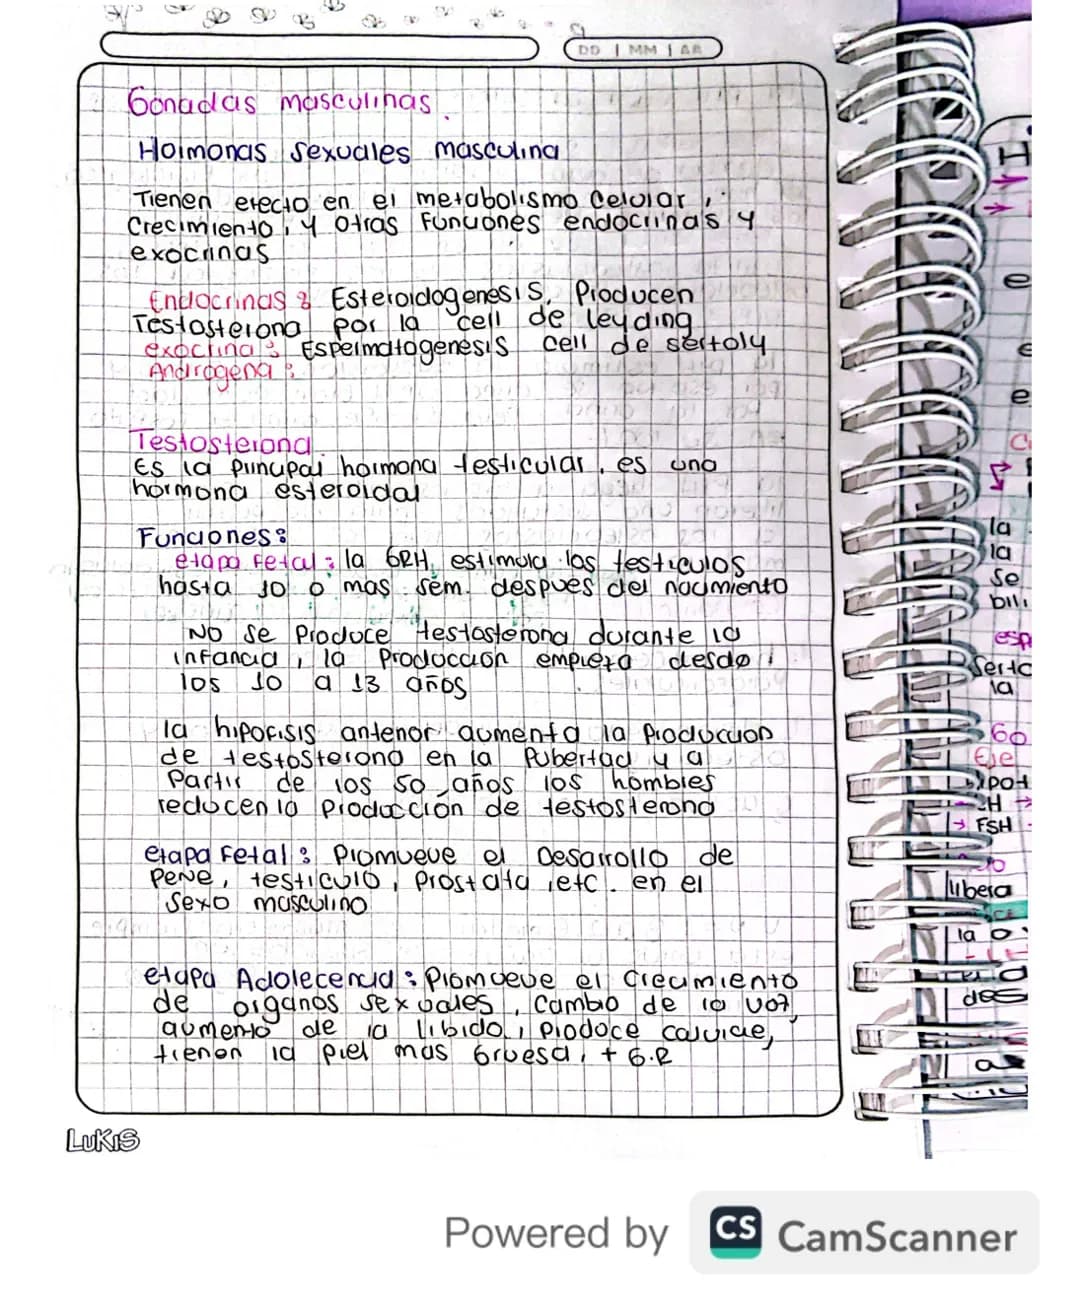 DD | MM | AA
Gonadas masculinas.
Hormonas sexuales masculina
Tienen efecto en el metabolismo Celular,
Crecimiento, y otras Funciones endocrinas y
exocrinas
Endocrinas: Esteroidogenesis, Producen
Testosterona por la cell de leyding
exocrina: Espermatogenesis cell de sertoly
Androgena:
Testosterona.
Es la principal hormona testicular, es una
hormona esteroidal
Funciones:
etapa Fetal: la GRH, estimula los testiculos
hasta 10 o mas sem. despues del nacimiento
No se Produce testosterona durante la
infancia, la Producción empieza desde
los 10 a 13 años
la hipofisis anterior aumenta la Produccion
de testosterona en la Pubertad y a
Partir de los 50 años los hombres
reducen la producción de testosterona
etapa Fetal: Promueve el Desarrollo de
Pene, testiculo, Prostata, etc. en el
Sexo masculino
etapa Adolecencia: Promueve el Crecimiento
de organos sexuales, Cambio de la voz,
aumento de la libido, produce calvicie,
tienen la piel mas Gruesa, + G.R
LUKIS
H
e
e
e
la
la
se
bili
esp
Serto
la
Go
Eje
ipot
LH →
→ FSH
libera
la o
des
Powered by CS CamScanner